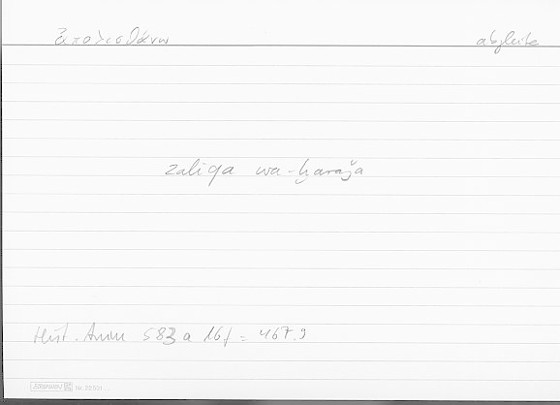 ἀπολισθάνω abgleite
zaliqa wa-ḫaraǧa
Hist. Anim 583 a 16f = 467.9